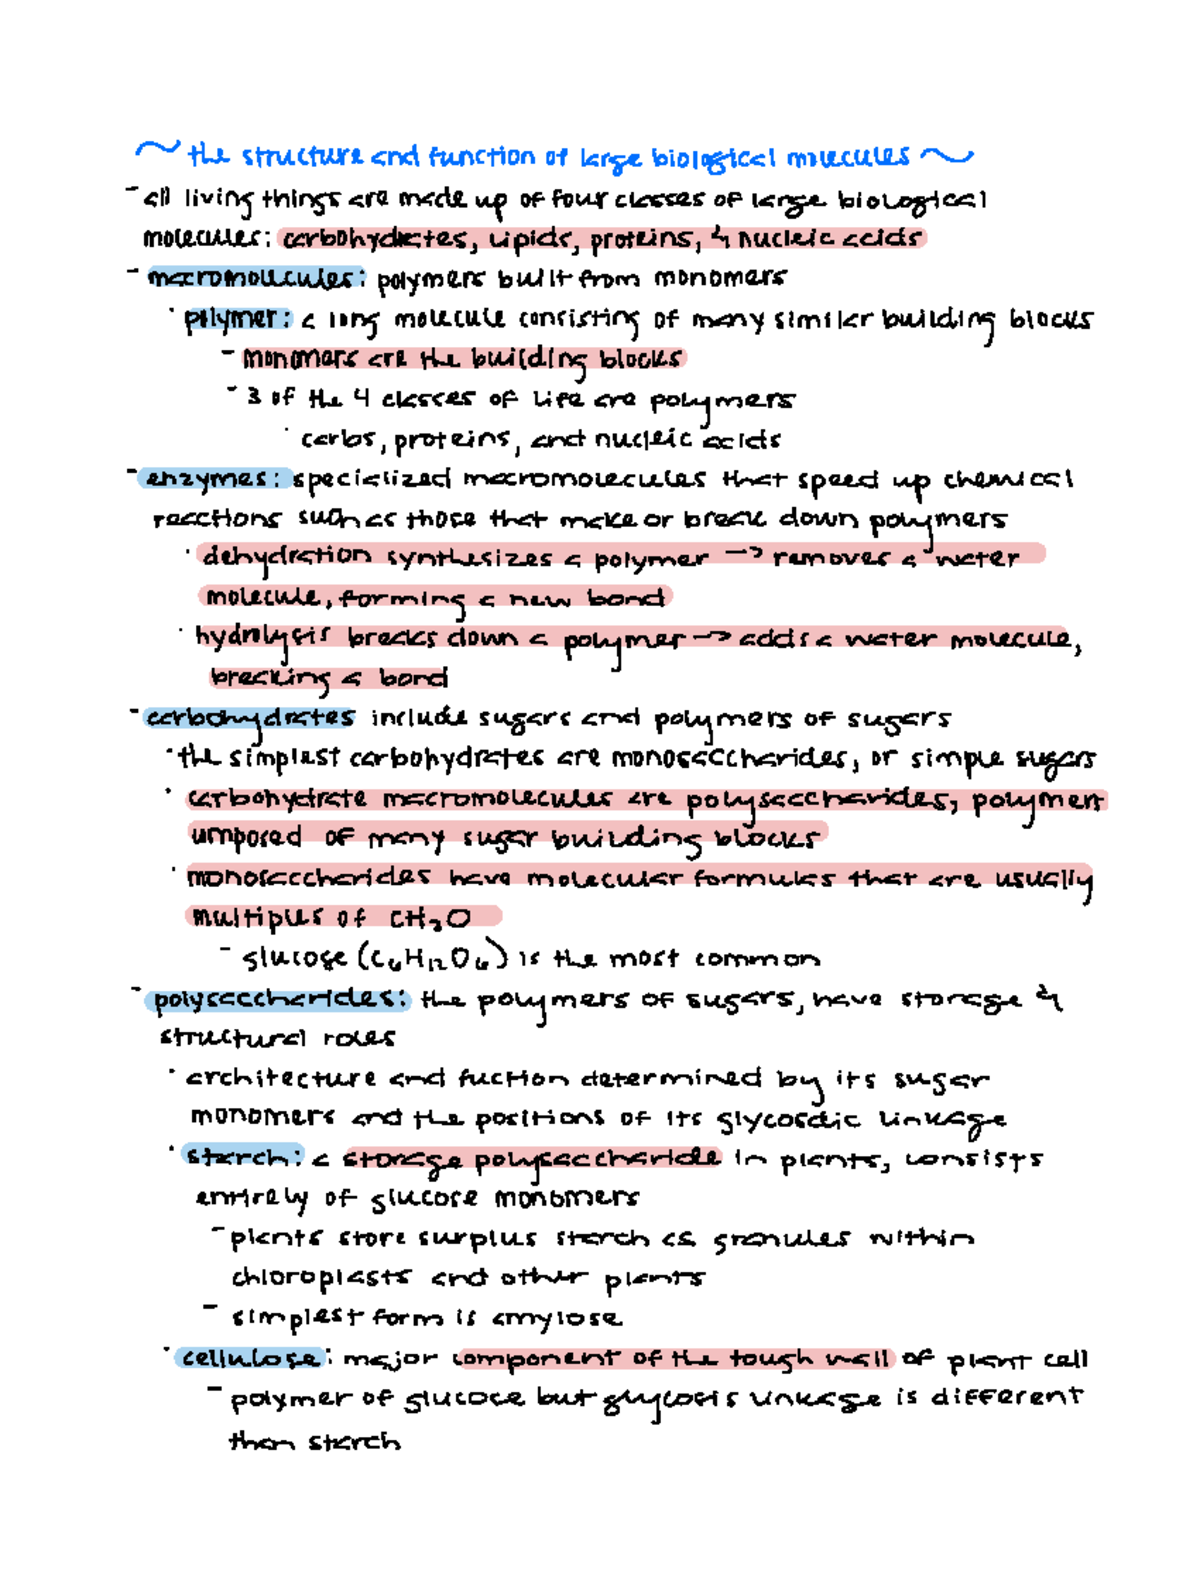 ~ the structure and function of large biological molecules ~
- all living things are made up of four classes of large biological
molecules: carbohydrates, lipids, proteins, & nucleic acids
- macromolecules: polymers built from monomers
· polymer: a long molecule consisting of many similar building blocks
- monomers are the building blocks
- 3 of the 4 classes of life are polymers
· carbs, proteins, and nucleic acids
- enzymes: specialized macromolecules that speed up chemical
reactions such as those that make or break down polymers
· dehydration synthesizes a polymer → removes a water
molecule, forming a new bond
· hydrolysis breaks down a polymer → adds a water molecule,
breaking a bond
- carbohydrates include sugars and polymers of sugars
· the simplest carbohydrates are monosaccharides, or simple sugars
· carbohydrate macromolecules are polysaccharides, polymers
composed of many sugar building blocks
· monosaccharides have molecular formulas that are usually
multiples of CH₂O
- glucose (C₆H₁₂O₆) is the most common
- polysaccharides: the polymers of sugars, have storage &
structural roles
· architecture and fuction determined by its sugar
monomers and the positions of its glycosdic linkage
· starch: a storage polysaccharide in plants, consists
entirely of glucose monomers
- plants store surplus starch as granules within
chloroplasts and other plants
- simplest form is amylose
· cellulose: major component of the tough wall of plant cell
- polymer of glucose but glycosis linkage is different
than starch